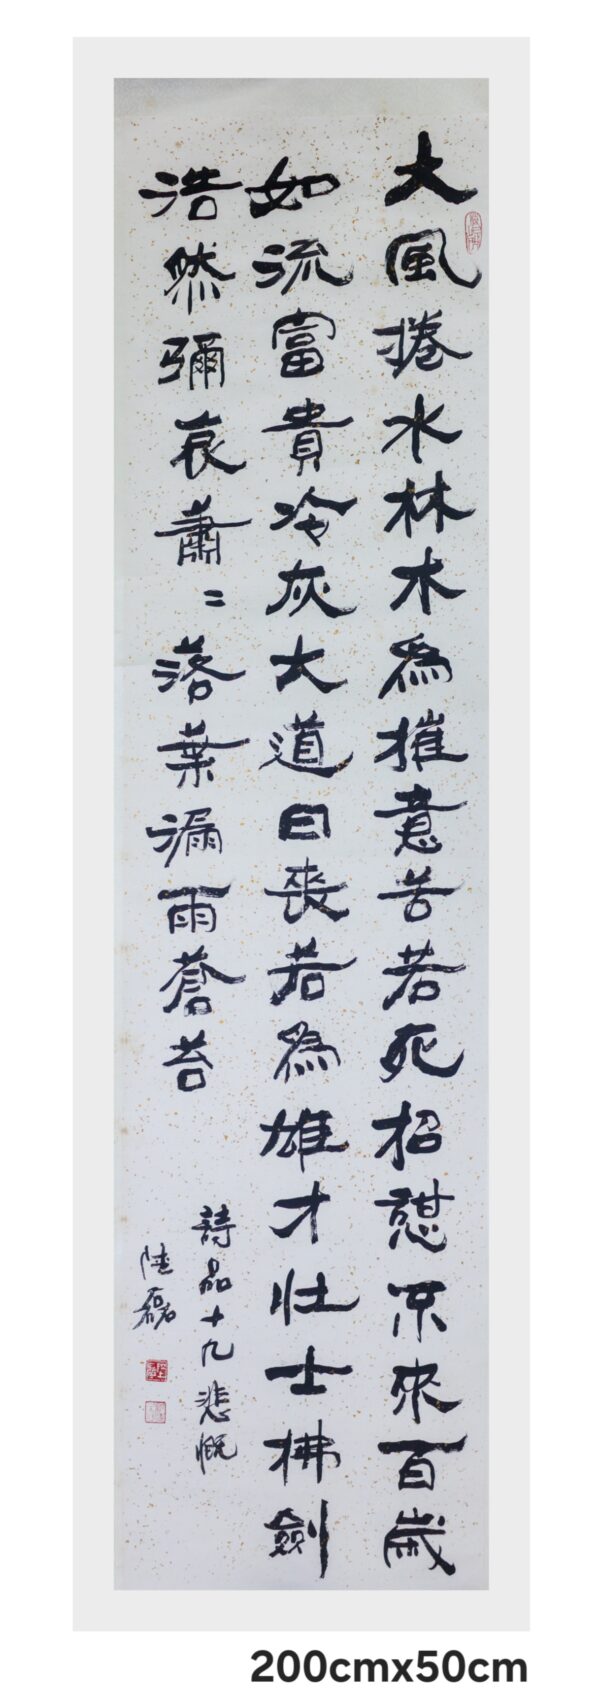 大風捲水林木為摧意苦若死招憇不來百歲
如流富貴冷灰大道日喪若為雄才壯士拂劍
浩然彌哀蕭〻落葉漏雨蒼苔
詩品十九悲慨
陸磊
200cmx50cm